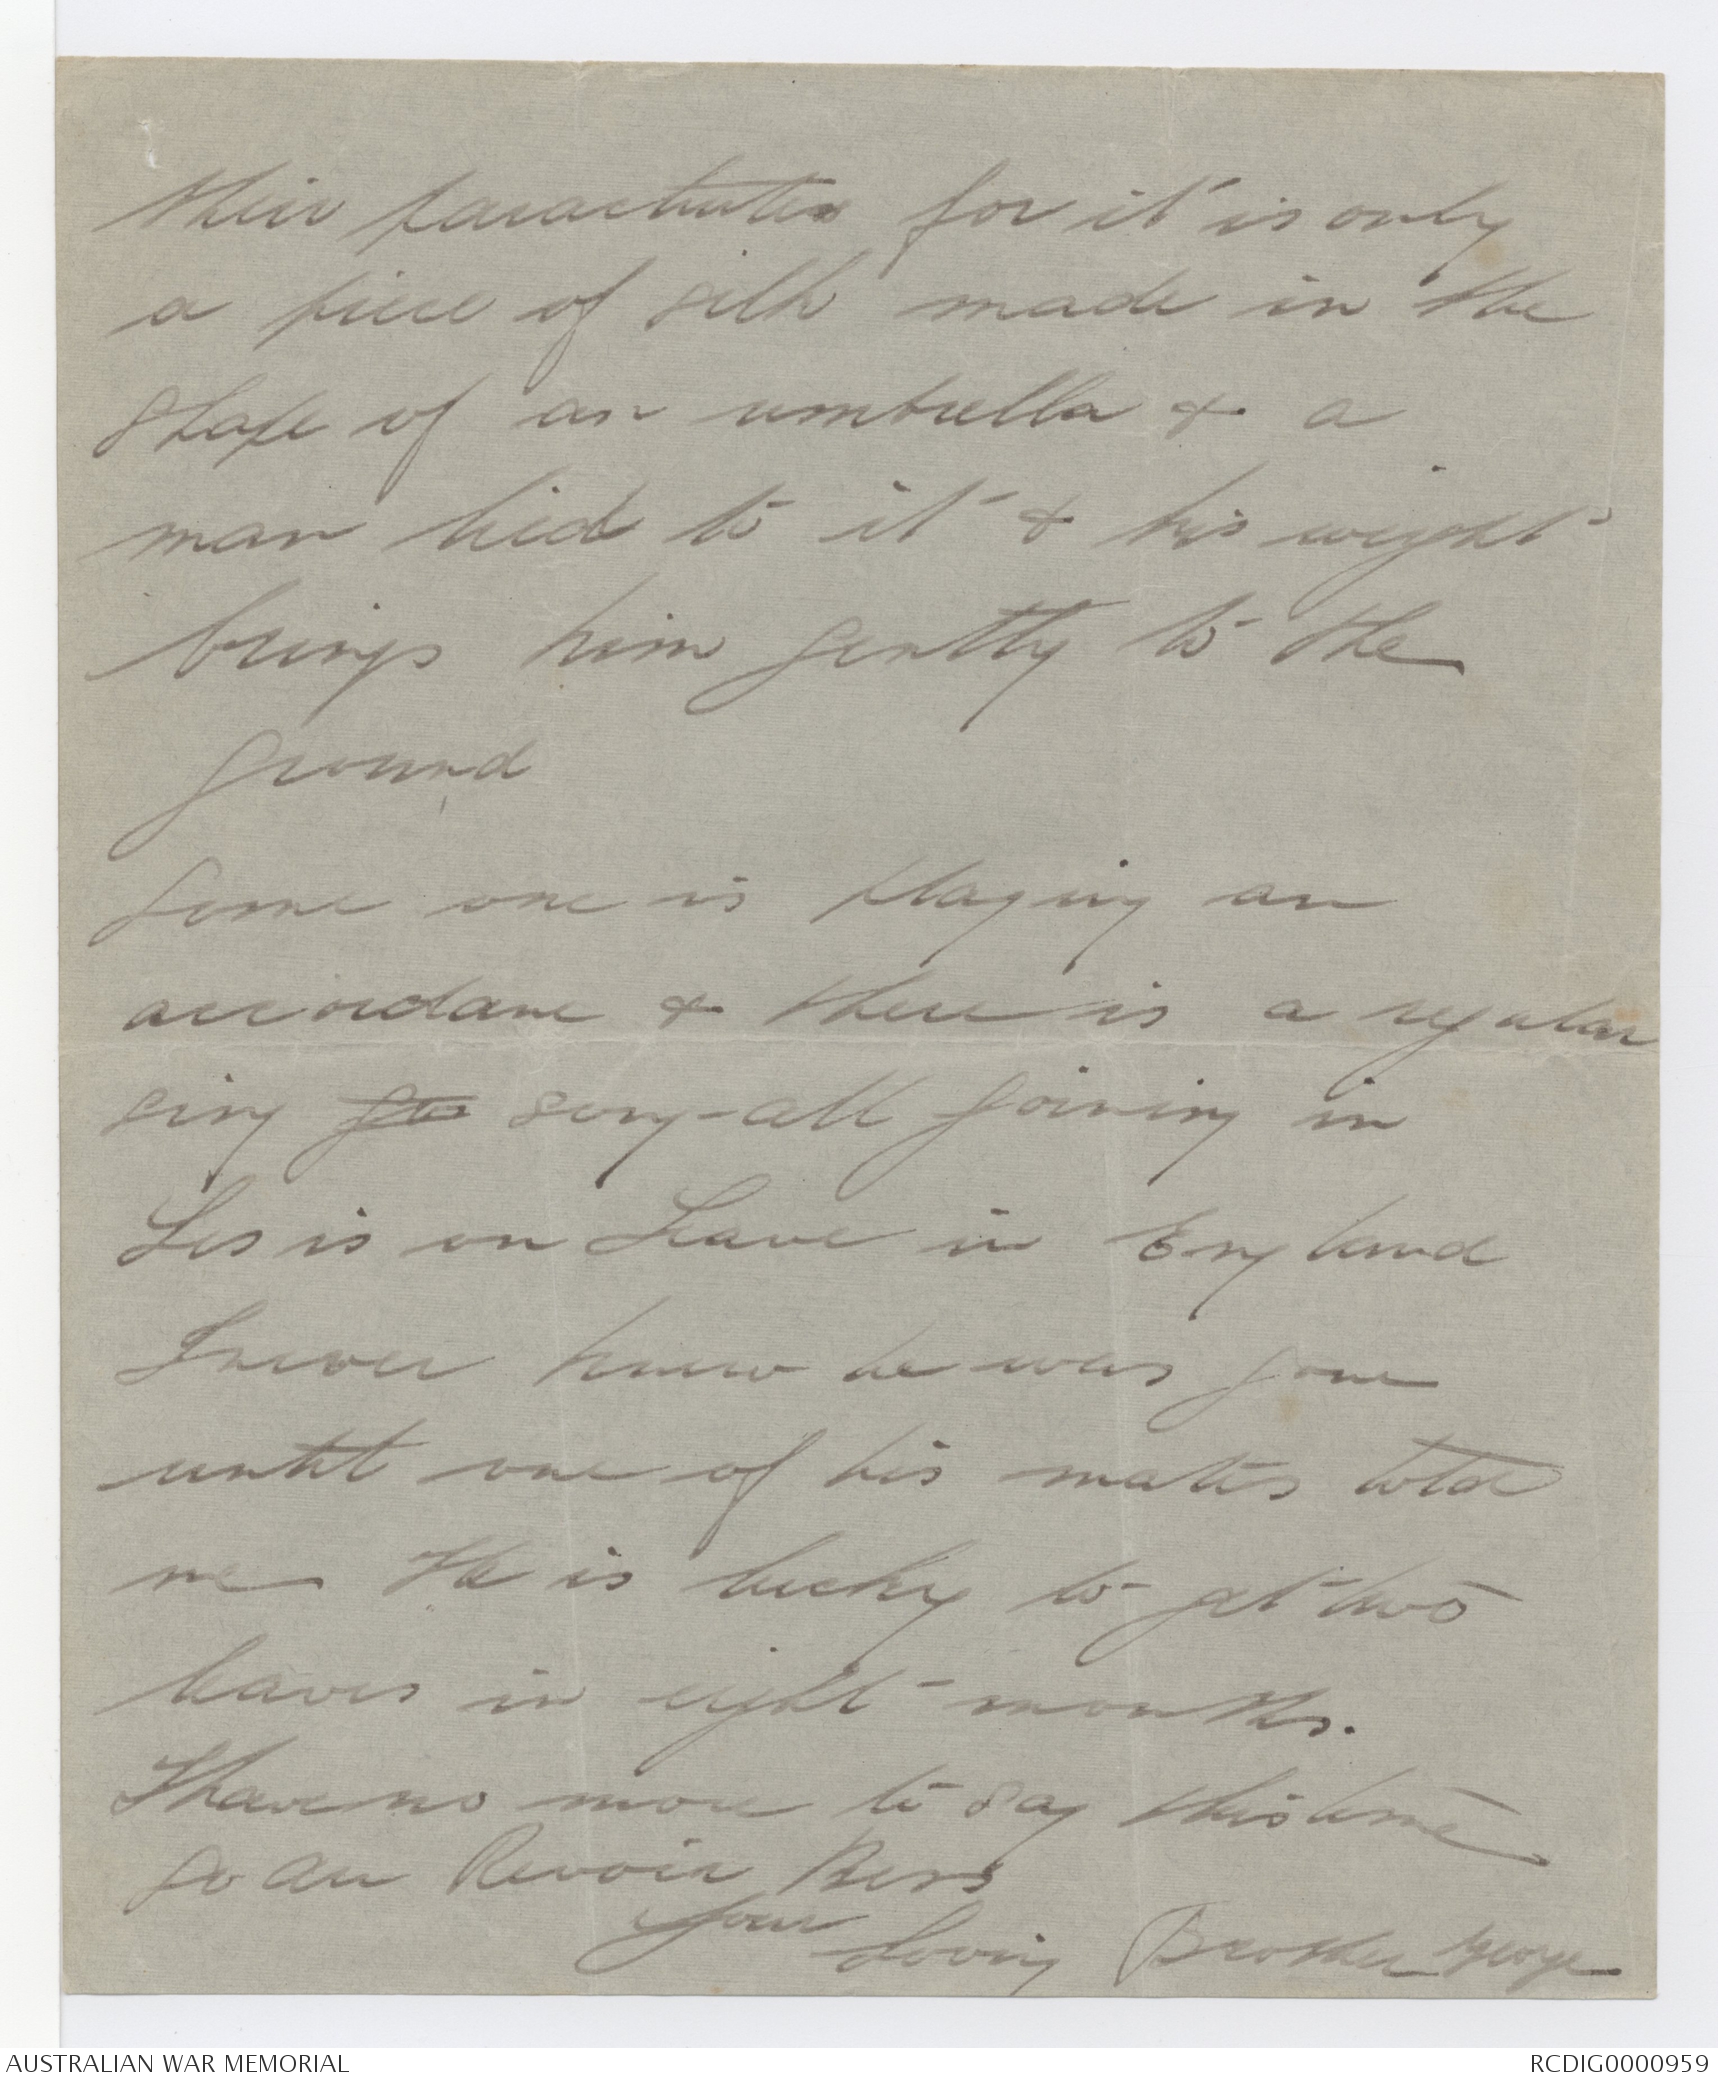 their parachutes for it is only
a piece of silk made in the
shape of an umbrella & a
man tied to it & his weight
brings him gently to the
ground
Some one is playing an
accordane & there is a regular
sing song-all joining in
Les is on Leave in England
I never knew he was gone
until one of his mates told
me He is lucky to get two
leaves in eight months.
I have no more to say this time
so au Revoir Bess
Your
Loving Brother George
AUSTRALIAN WAR MEMORIAL
RCDIG0000959